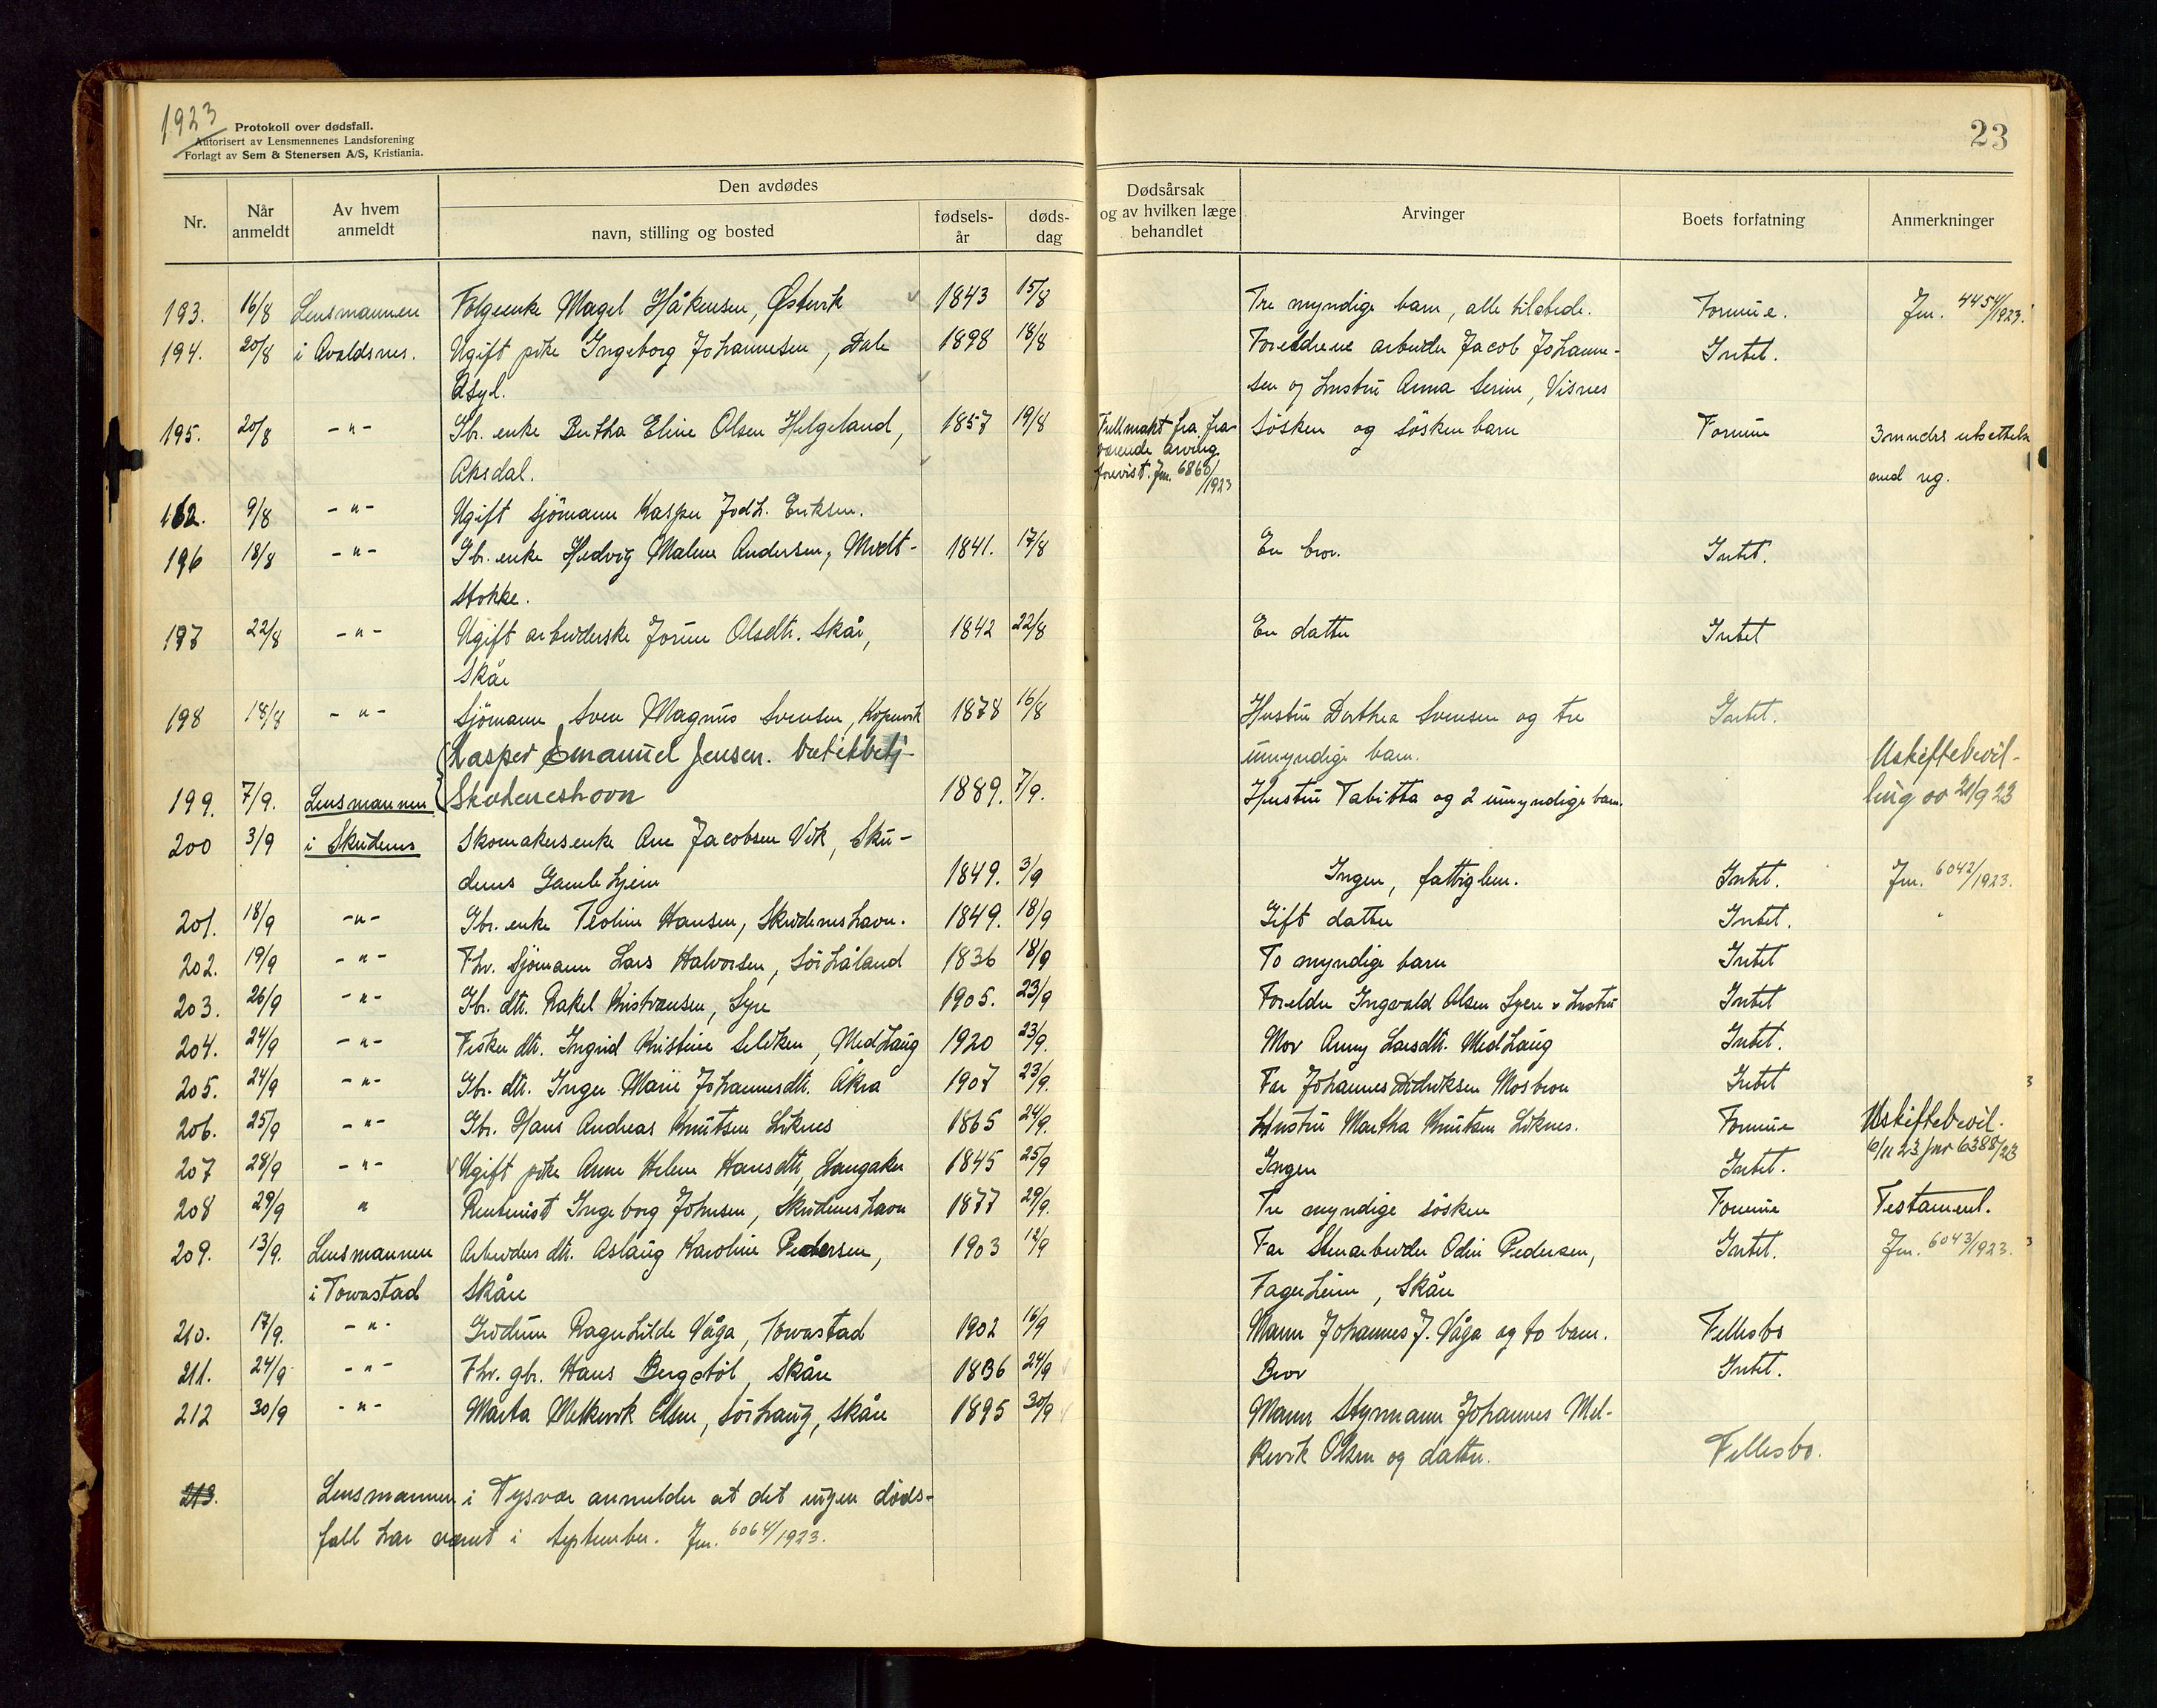 1923
Protokoll over dødsfall.
Autorisert av Lensmennenes Landsforening
Forlagt av Sem & Stenersen A/S, Kristiania.
23
Nr. Når anmeldt Av hvem anmeldt Den avdødes navn, stilling og bosted fødsels-år døds-dag Dødsårsak og av hvilken læge behandlet Arvinger Boets forfatning Anmerkninger
193. 16/8 Lensmannen Folgeenke Magel Håkensen, Østevik 1843 15/8 Tre myndige barn, alle tilstede. Formue. Jnr. 4454/1923.
194. 20/8 i Avaldsnes. Ugift pike Ingeborg Johannesen, Dale 1898 18/8 Foreldrene arbeider Jacob Johanne- Intet.
Asyl. sen og hustru Anna Serine, Visnes
195. 20/8 -"- Gbr. enke Bertha Eline Olsen Helgeland, 1857 19/8 Fullmakt fra fra- søsken og søskenbarn Formue 3 mndrs utsettelse
Aksdal. værende arving med reg.
forevist. Jnr. 6860/1923
162. 9/8 -"- Ugift sjömann Kasper Eriksen.
196 18/8 -"- Gbr. enke Hedvig Malene Andersen, Midt- 1841. 17/8 En bror. Intet.
stokke.
197 22/8 -"- Ugift arbeiderske Jorine Olsdtr. Skår, 1842 22/8 En datter Intet
Skår
198 18/8 -"- Sjömann Sven Magnus Svensen, Kopervik 1878 16/8 Hustru Dorthea Svensen og tre Intet.
umyndige barn.
Kasper Emanuel Jensen. butikkbetj- Uskiftebevil-
199. 7/9. Lensmannen Skudeneshavn 1889. 7/9. Hustru Tabitta og 2 umyndige barn. ling av 21/9 23
200 3/9 i Skudenes Skomakersenke Ane Jacobsen Vik, Sku-
denes Gamlehjem 1849. 3/9 Ingen, fattiglem. Intet. Jnr. 6042/1923.
201. 18/9 -"- Gbr. enke Teoline Hansen, Skudeneshavn. 1849. 18/9 Gift datter Intet. "
202. 19/9 -"- Fhv. Sjömann Lars Halvorsen, Sörhåland 1836 18/9 To myndige barn Intet
203. 26/9 -"- Gbr. dtr. Rakel Kristiansen, Syre 1905. 23/9 Foreldre Ingvald Olsen Syre o hustru Intet
204. 24/9 -"- Fisker dtr. Ingrid Kristine Selvken, Medhaug 1920 23/9. Mor Anny Larsdtr. Medhaug Intet.
205. 24/9 -"- Gbr. dtr. Inger Marie Johannesdtr. Åkra 1907 23/9. Far Johannes Didriksen Mosbron Intet
206. 25/9 -"- Gbr. Hans Andreas Knutsen Liknes 1865 24/9. Hustru Martha Knutsen Liknes. Formue Uskiftebevil.
207 28/9 -"- Ugift pike Anne Helene Hansdtr, Langaker 1845 25/9 Ingen Intet. 6/11 23 jnr 6388/23
208 29/9 " Rentenist Ingeborg Johnsen, Skudeneshavn 1877 29/9. Tre myndige søsken Formue Testament.
209. 13/9. Lensmannen Arbeiders dtr. Aslaug Karoline Pedersen, 1903 12/9 Far Stenarbeider Odin Pedersen, Intet. Jnr. 6043/1923.
i Torvastad Skåre Fagerheim, Skåre
210. 17/9. -"- Gudrun Ragnhilde Våga, Torvastad 1902 16/9 Mann Johannes J. Våga og to barn. Fellesbo
211. 24/9 -"- Fhv. gbr. Hans Bergstöl, Skåre 1836 24/9 Bror Intet.
212 30/9 -"- Marta Melkevik Olsen, Sörhaug, Skåre 1895 30/9 Mann Styrmann Johannes Mel-
kevik Olsen og datter. Fellesbo.
213. Lensmannen i Tysvær anmelder at det ingen döds-
fall har været i september. Jnr. 6064/1923.